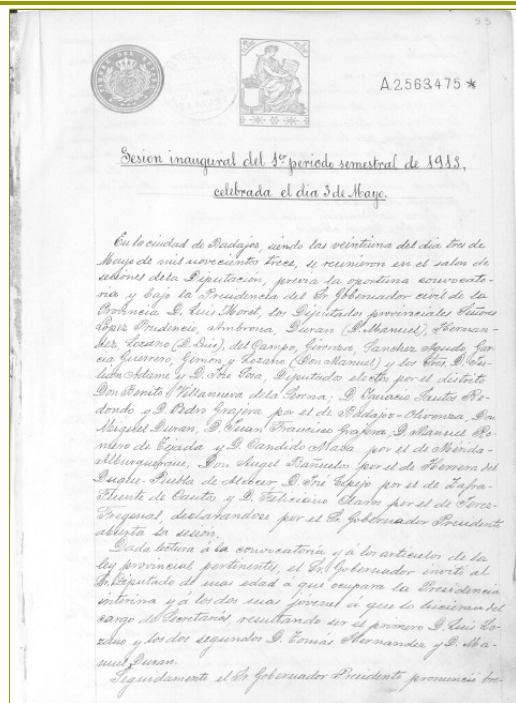 93
A.2.563.475 *
Sesion inaugural del 1er periodo semestral de 1913,
celebrada el dia 3 de Mayo.
En la ciudad de Badajoz, siendo las veintiuna del dia tres de
Mayo de mil novecientos trece, se reunieron en el salon de
sesiones de la Diputación, previa la oportuna convocato-
ria y bajo la Presidencia del Sr. Gobernador civil de la
Provincia D. Luis Morel, los Diputados provinciales Señores
Lopez Prudencio, Ambrona, Duran (D. Manuel), Hernan-
dez, Lozano (D. Luis), del Campo, Gironza, Sanchez Agudo, Gar-
cia Guerrero, Gimon y Lozano (Don Manuel) y los Sres. D. Ju-
lian Adame y D. José Sosa, Diputados electos por el distrito
Don Benito-Villanueva de la Serena; D. Ignacio Santos Re-
dondo y D. Pedro Grajera por el de Badajoz-Olivenza, Don
Miguel Duran, D. Juan Francisco Grajera, D. Manuel Ro-
mero de Tejada y D. Candido Maza por el de Mérida-
Alburquerque, Don Angel Bañuelos por el de Herrera del
Duque-Puebla de Alcocer, D. José Espejo por el de Zafra-
Fuente de Cantos y D. Feliciano Claros por el de Jerez-
Fregenal, declarandose por el Sr. Gobernador Presidente
abierta la sesion.
Dada lectura á la convocatoria y á los articulos de la
ley provincial pertinentes, el Sr. Gobernador invitó al
Sr. Diputado de mas edad á que ocupara la Presidencia
interina y á los dos mas jóvenes á que lo hicieran del
cargo de Secretarios, resultando ser el primero D. Luis Lo-
zano y los dos segundos D. Tomás Hernandez y D. Ma-
nuel Duran.
Seguidamente el Sr. Gobernador Presidente pronunció bre-